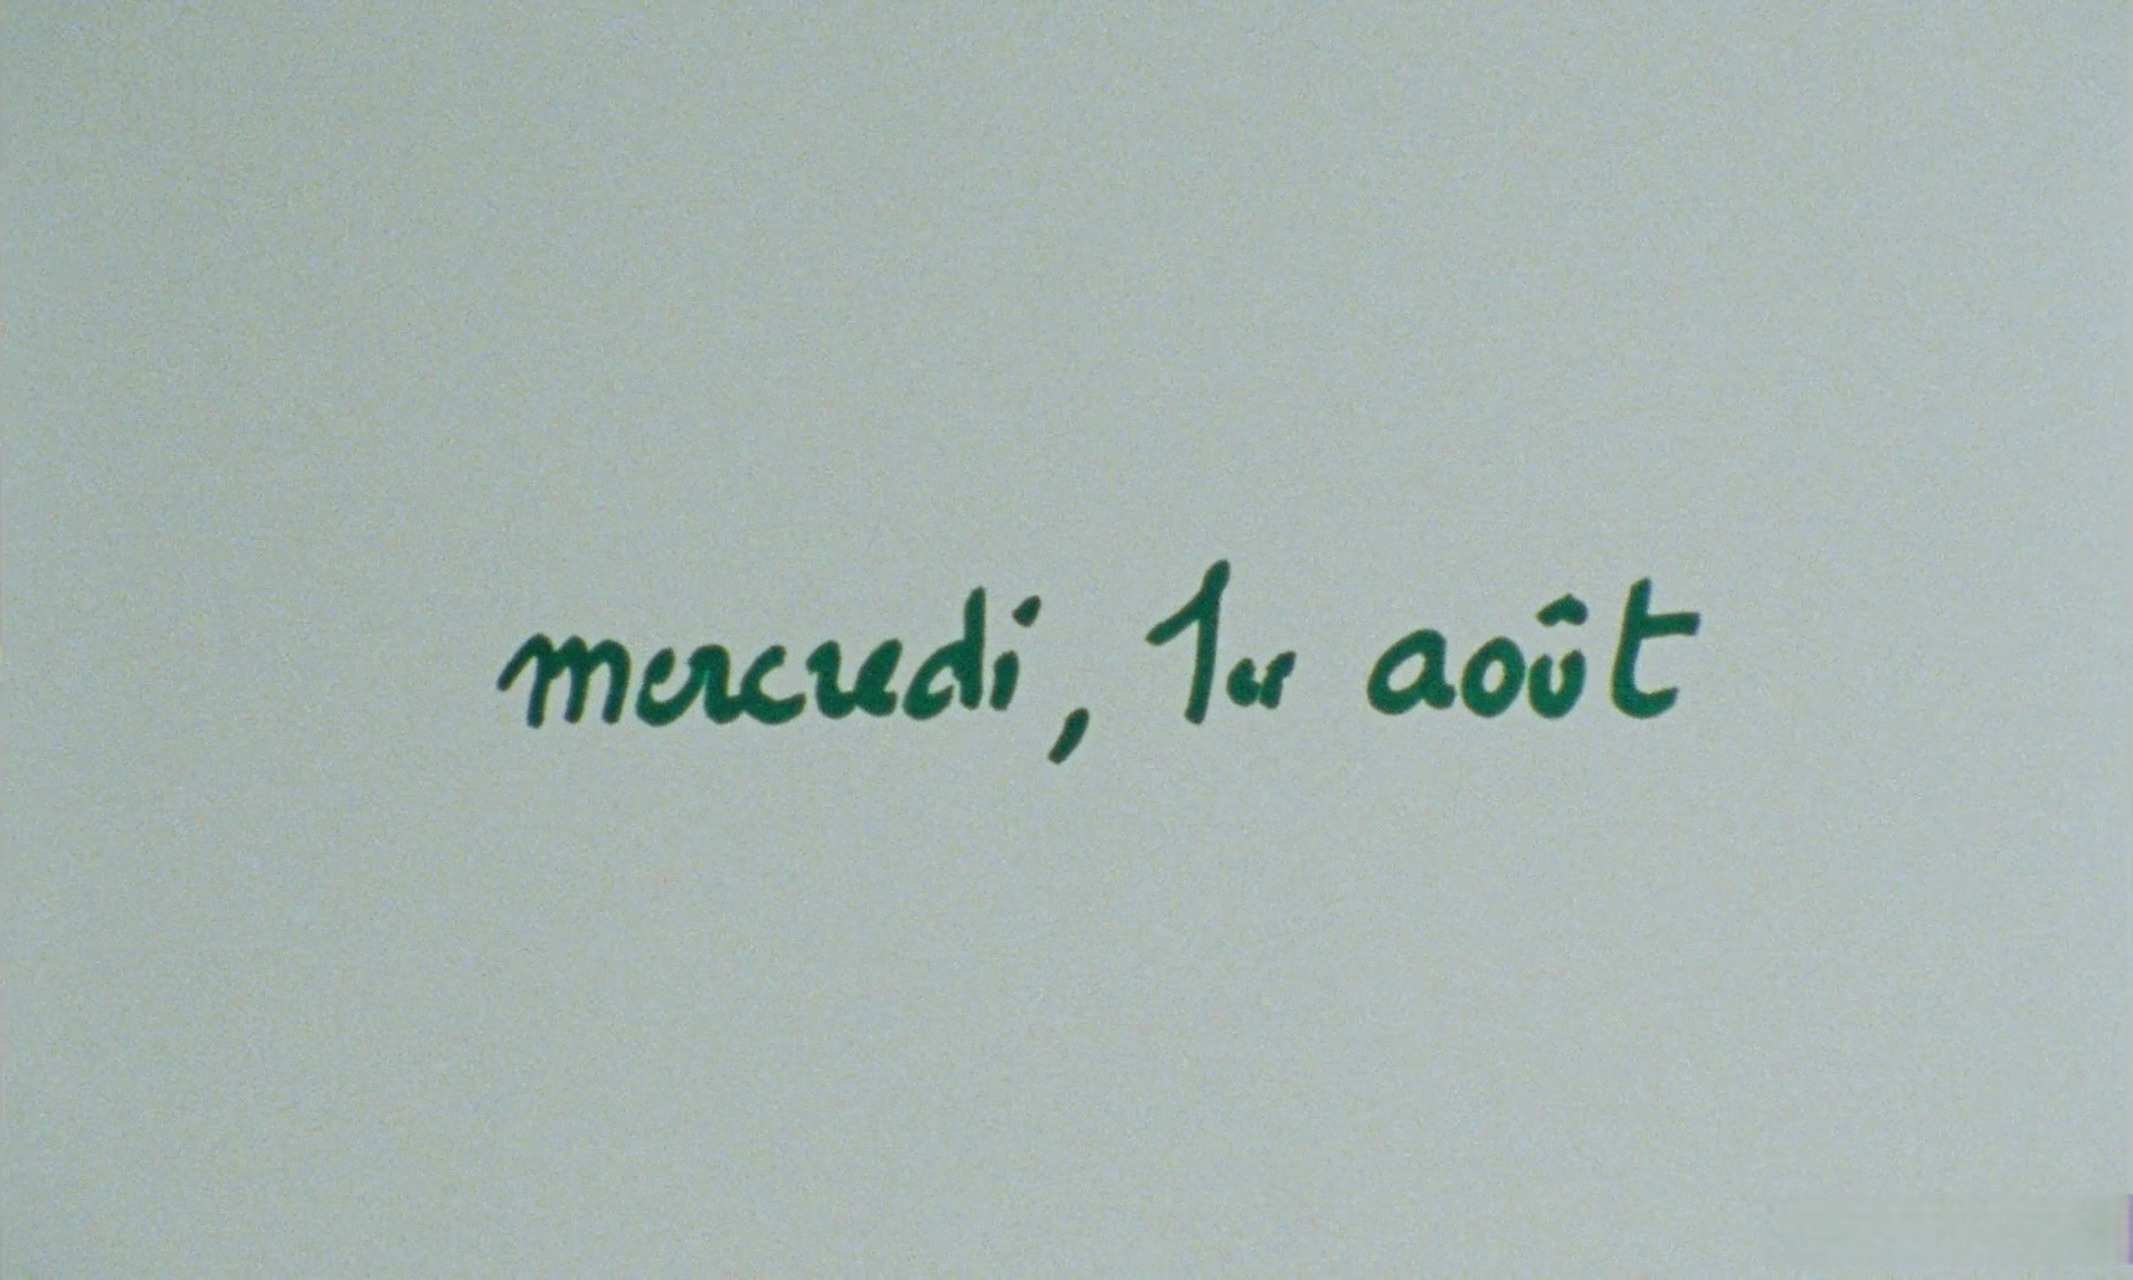 mercredi, 1er août